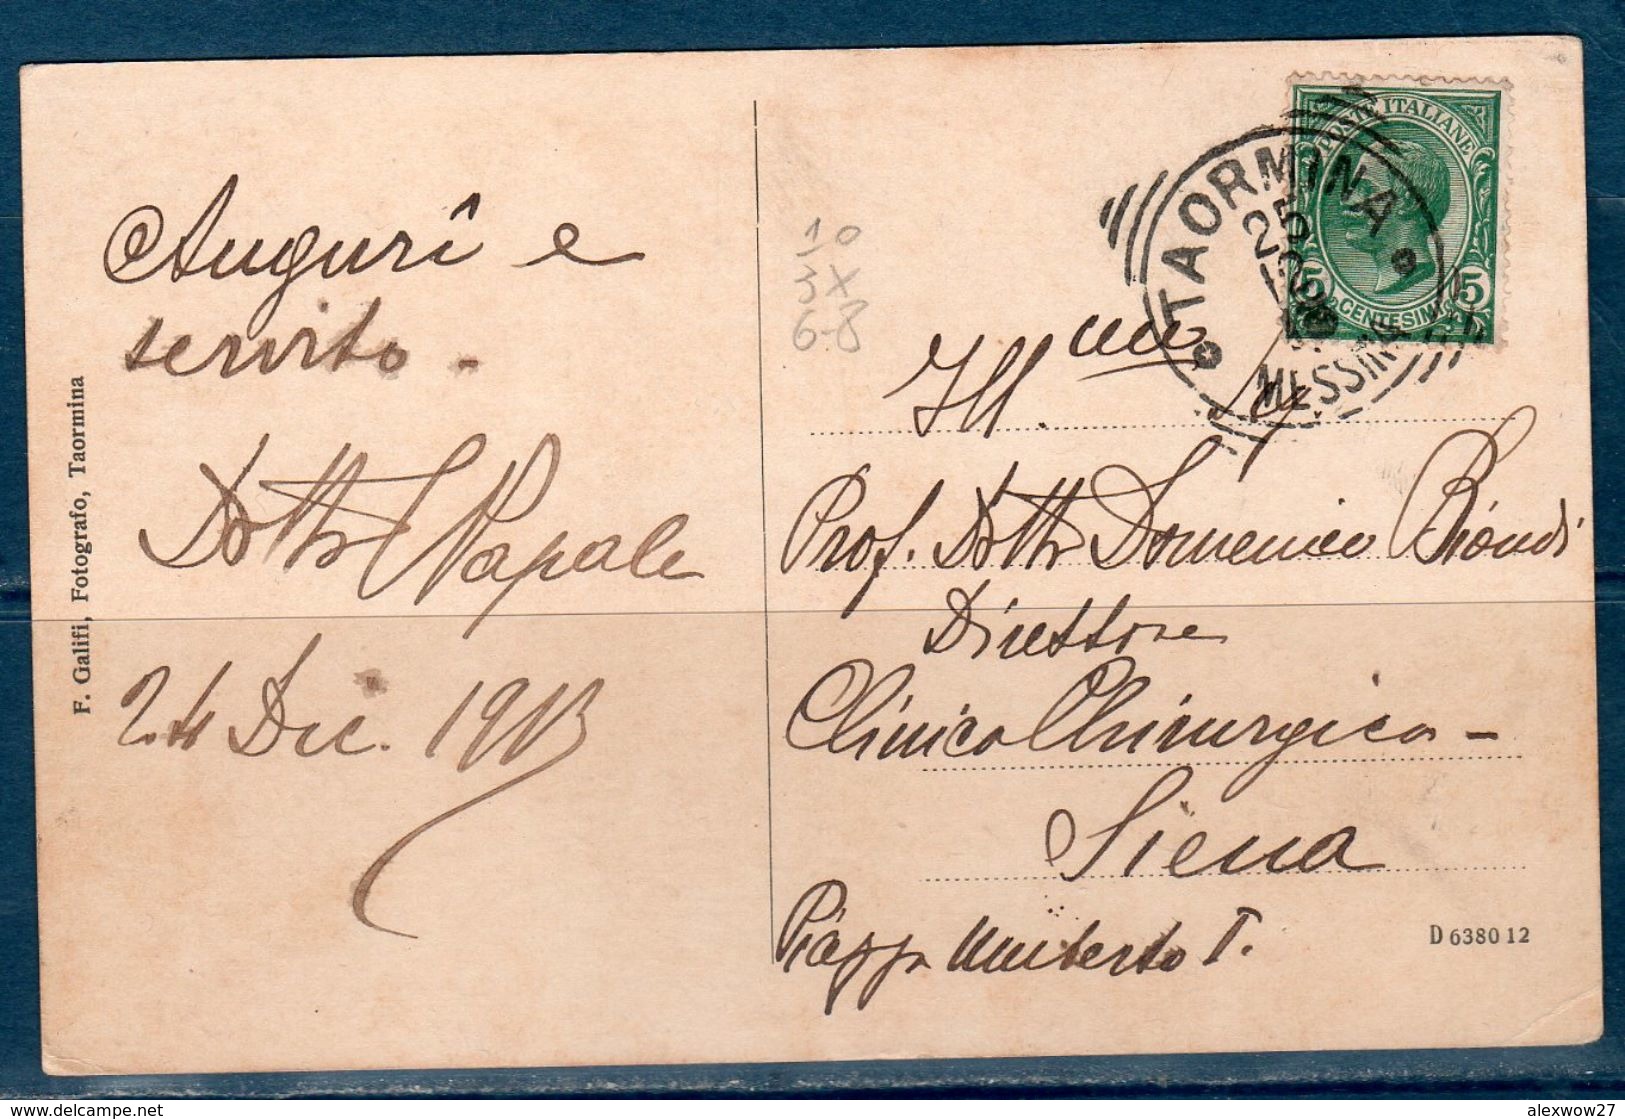 Auguri e
servito -
Dott Papale
24 Dic. 1913
F. Galifi, Fotografo, Taormina
10
3 X
6-8
POSTE ITALIANE
5 CENTESIMI 5
TAORMINA
MESSINA
Ill.mo Sig
Prof. Dottr Domenico Biondi
Direttore
Clinica Chirurgica -
Siena
Piazza Umberto I.
D 6380 12
alexwow27